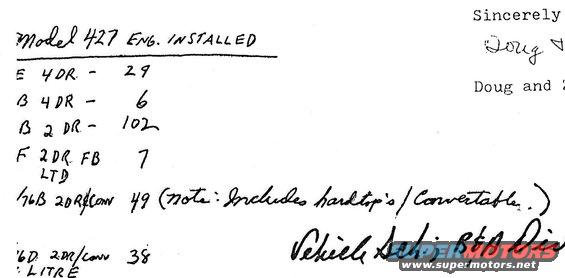 Sincerely
Doug
Model 427 ENG. INSTALLED
E 4 DR - 29
Doug and
B 4 DR - 6
B 2 DR - 102
F 2 DR FB 7
LTD
76B 2DR/CONV 49 (Note: Includes hardtip's/Convertable.)
6D 2DR/CONV 38
LITRE
Vehicle
SUPERMOTORS
www.supermotors.net